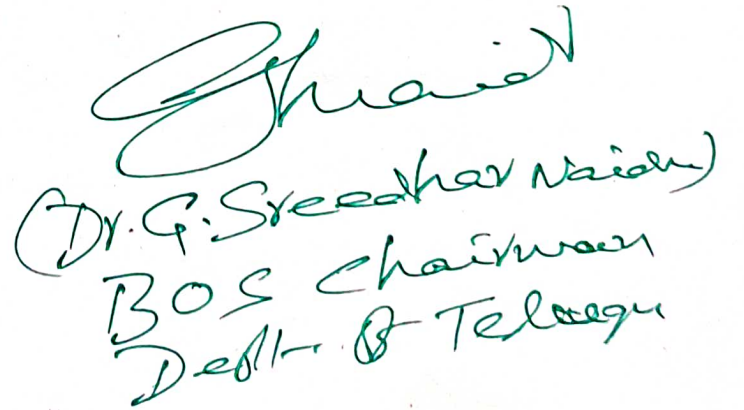 (Dr. G. Sreedhar Naidu)
BOS Chairman
Dept. of Telugu